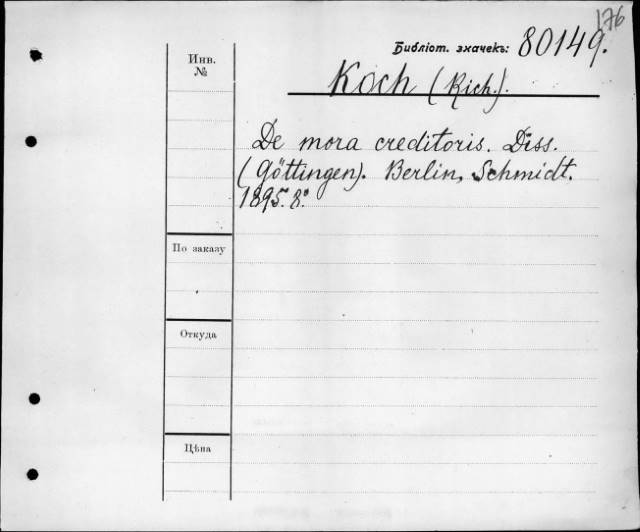 176
Библіот. значекъ: 80149.
Инв.
№
Koch (Rich.).
De mora creditoris. Diss.
(Göttingen). Berlin, Schmidt.
1895. 8.°
По заказу
Откуда
Цѣна